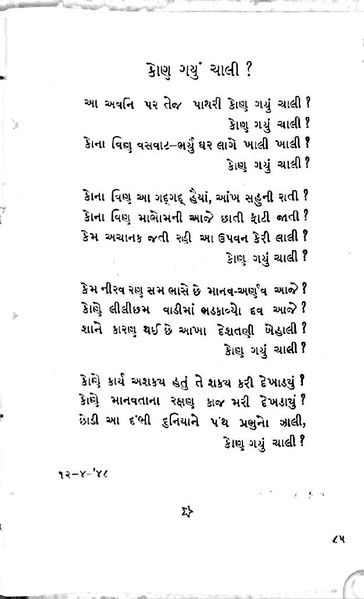 કોણ ગયું ચાલી ?
આ અવનિ પર તેજ પાથરી કોણ ગયું ચાલી ?
કોણ ગયું ચાલી ?
કોના વિણ વસવાટ-ભર્યું ઘર લાગે ખાલી ખાલી ?
કોણ ગયું ચાલી ?
કોના વિણ આ ગદ્‌ગદ્ હૈયાં, આંખ સહુની રાતી ?
કોના વિણ માભોમની આજે છાતી ફાટી જાતી ?
કેમ અચાનક જતી રહી આ ઉપવન કેરી લાલી ?
કોણ ગયું ચાલી ?
કેમ નીરવ રણ સમ ભાસે છે માનવ-અર્ણવ આજે ?
કોણે લીલીછમ વાડીમાં ભડકાવ્યો દવ આજે ?
શાને કારણ થઈ છે આખા દેશતણી બેહાલી ?
કોણ ગયું ચાલી ?
કોણે કાર્ય અશક્ય હતું તે શક્ય કરી દેખાડયું ?
કોણે માનવતાના રક્ષણ કાજ મરી દેખડાયું ?
છોડી આ દંભી દુનિયાને પંથ પ્રભુનો ઝાલી,
કોણ ગયું ચાલી ?
૧૨-૪-'૪૮
૮૫